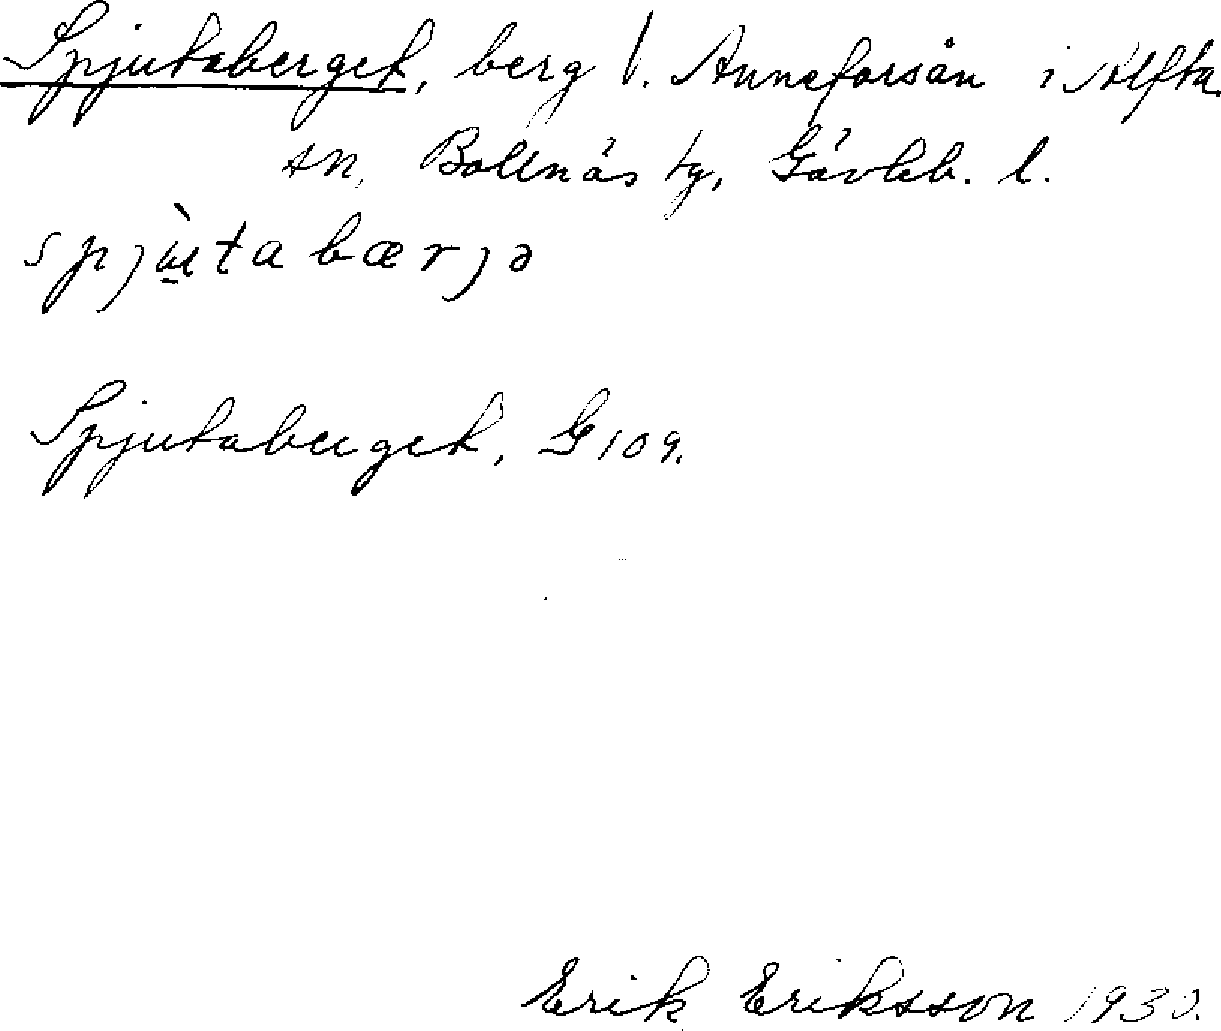 Spjutaberget, berg V. Annaforsån i Alfta
sn, Bollnäs tg, Gävleb. l.
spjùtabærjə
Spjutaberget, G109.
Erik Eriksson 1930.